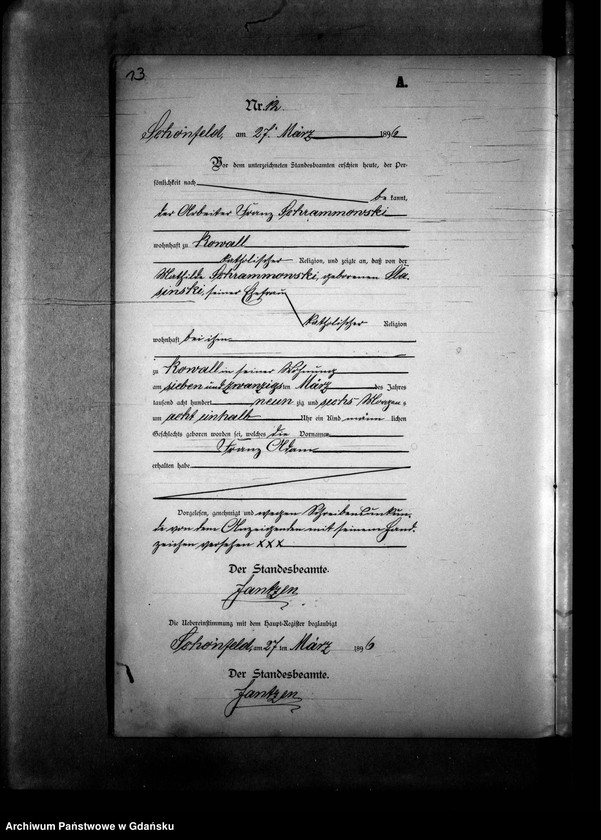 13
A.
Nr. 12
Schönfeld, am 27. März 1896
Vor dem unterzeichneten Standesbeamten erschien heute, der Per-
sönlichkeit nach
be kannt,
der Arbeiter Franz Schrammowski
wohnhaft zu Kowall
katholischer Religion, und zeigte an, daß von der
Mathilde Schrammowski, geborenen
seiner Ehefrau
katholischer Religion
wohnhaft bei ihm
zu Kowall in seiner Wohnung
am sieben und zwanzigsten März des Jahres
tausend acht hundert neun zig und sechs Morgens
um acht einhalb Uhr ein Kind männ lichen
Geschlechts geboren worden sei, welches die Vornamen
Franz Adam
erhalten habe
Vorgelesen, genehmigt und wegen Schreibensunkun-
de von dem Anzeigenden mit seinem Hand-
zeichen versehen XXX
Der Standesbeamte.
Jantzen
Die Uebereinstimmung mit dem Haupt-Register beglaubigt
Schönfeld, am 27 ten März 1896
Der Standesbeamte.
Jantzen
Archiwum Państwowe w Gdańsku